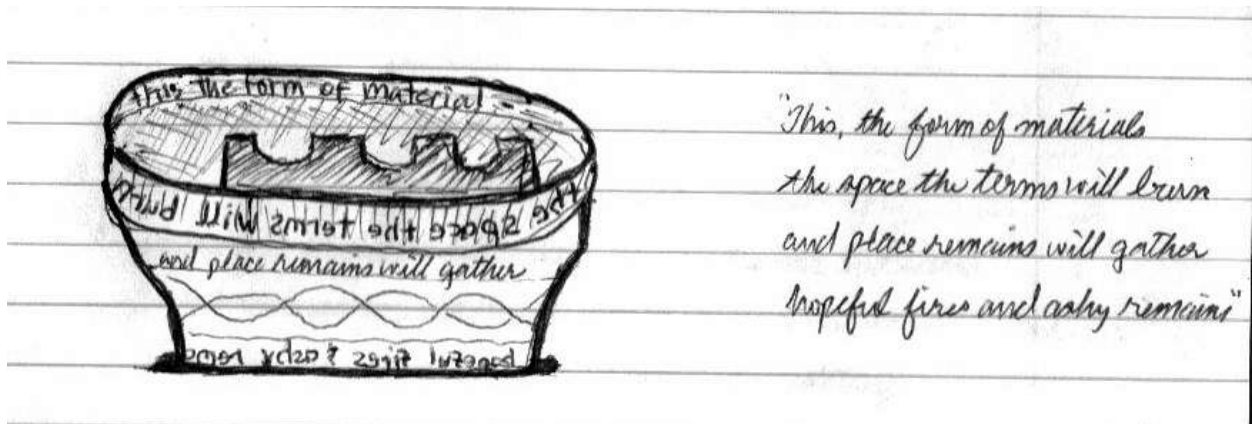 this the form of material
the space the terms will burn
and place remains will gather
hopeful fires & ashy remai
"This, the form of materials
the space the terms will burn
and place remains will gather
hopeful fires and ashy remains"